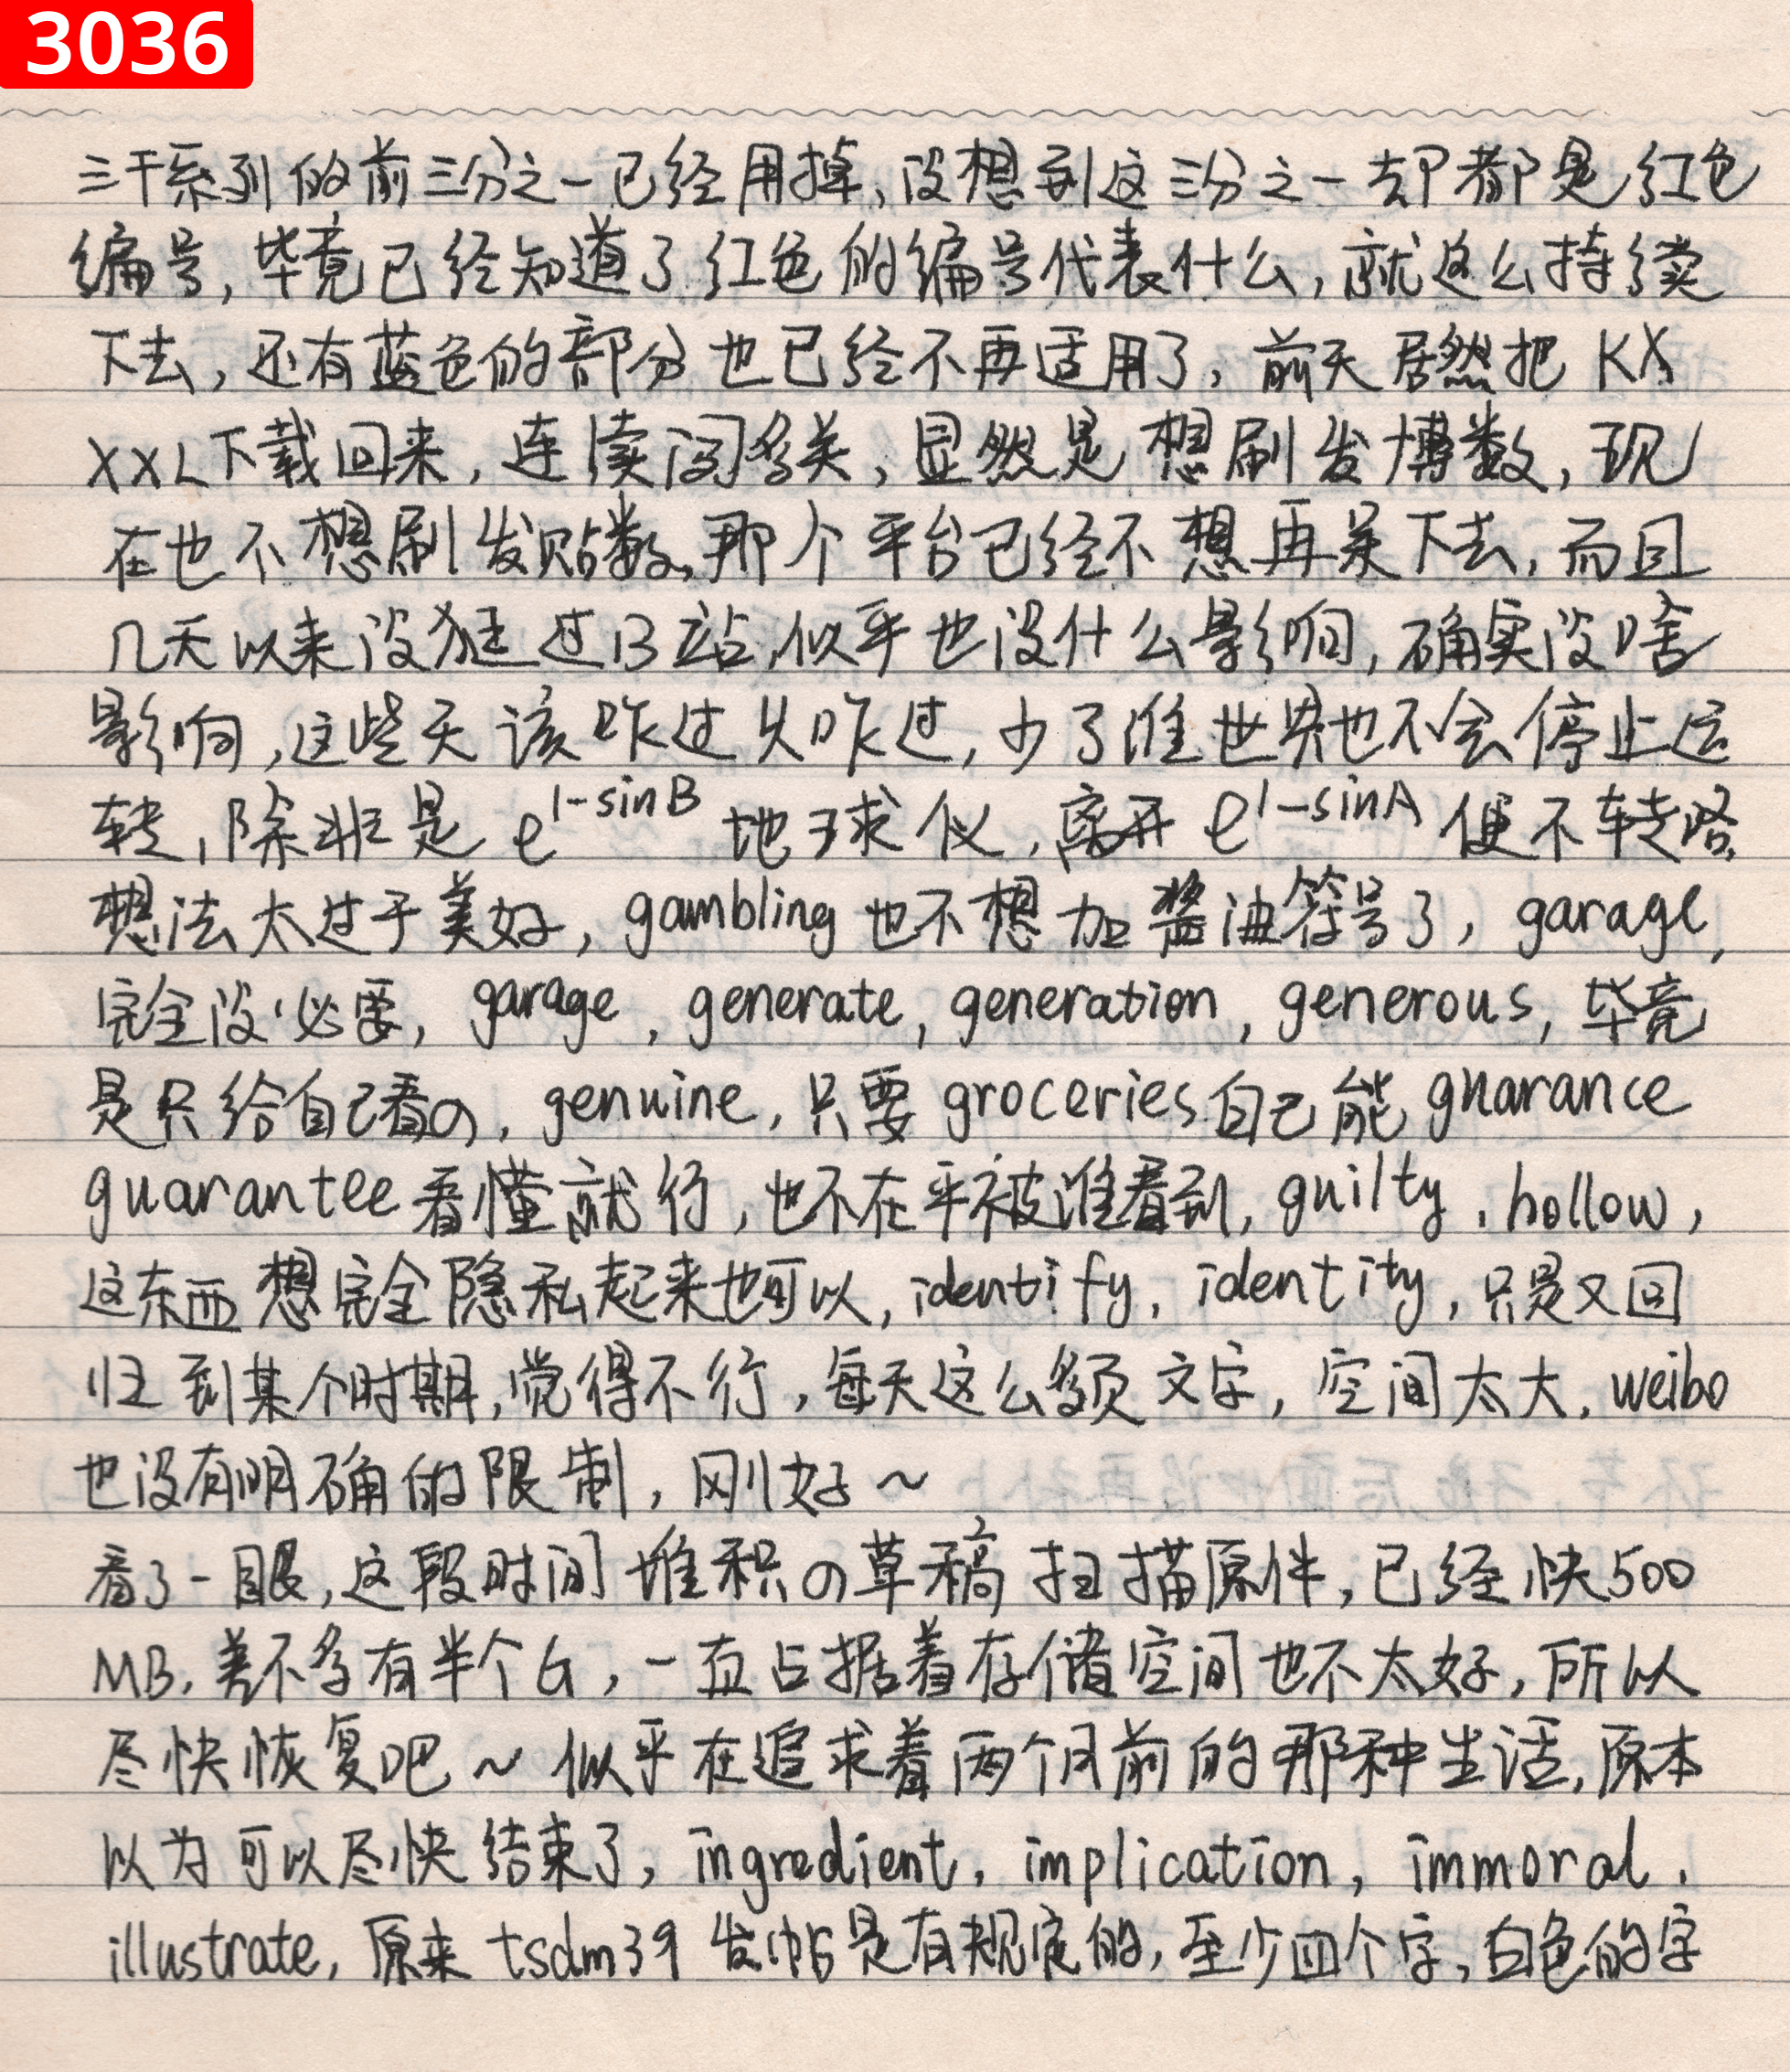 3036
三千系列的前三分之一已经用掉,没想到这三分之一却都是红色
编号,毕竟已经知道了红色的编号代表什么,就这么持续
下去,还有蓝色的部分也已经不再适用了,前天居然把KX
XXL下载回来,连续闯多关,显然是想刷发博数,现
在也不想刷发贴数,那个平台已经不想再呆下去,而且
几天以来没逛过B站,似乎也没什么影响,确实没啥
影响,这些天该咋过还咋过,少了谁世界也不会停止运
转,除非是e^1-sinB地球仪,离开e^1-sinA便不转咯,
想法太过于美好,gambling也不想加酱油符号了,garage,
完全没必要,garage,generate,generation,generous,毕竟
是只给自己看の,genuine,只要groceries自己能guarance
guarantee看懂就行,也不在乎被谁看到,guilty,hollow,
这东西想完全隐私起来也可以,identify,identity,只是又回
归到某个时期,觉得不行,每天这么多页文字,空间太大,weibo
也没有明确的限制,刚好~
看了一眼,这段时间堆积の草稿扫描原件,已经快500
MB,差不多有半个G,一直占据着存储空间也不太好,所以
尽快恢复吧~似乎在追求着两个月前的那种生活,原本
以为可以尽快结束了,ingredient,implication,immoral,
illustrate,原来tsdm39发帖是有规定的,至少四个字,白色的字